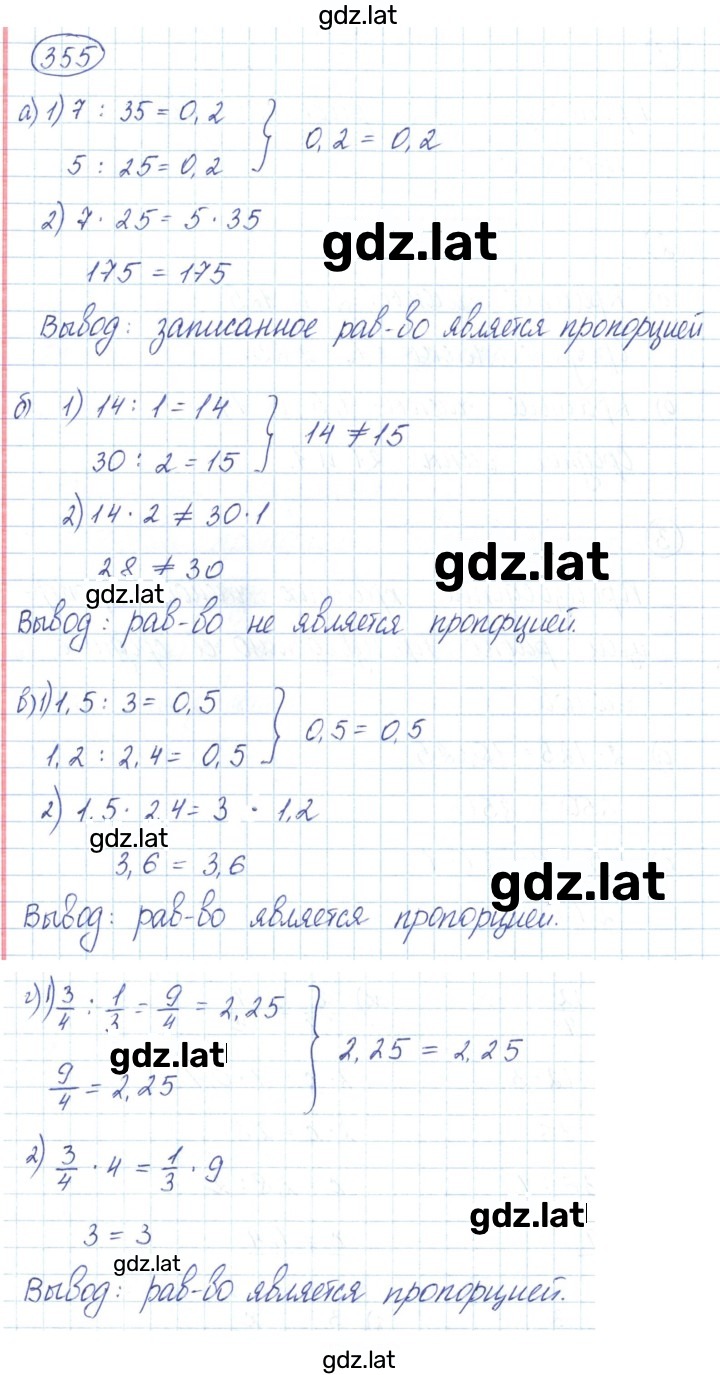 gdz.lat
355
а) 1) 7 : 35 = 0,2
5 : 25 = 0,2 } 0,2 = 0,2
2) 7 · 25 = 5 · 35
gdz.lat
175 = 175
Вывод: записанное рав-во является пропорцией
б) 1) 14 : 1 = 14
30 : 2 = 15 } 14 ≠ 15
2) 14 · 2 ≠ 30 · 1
gdz.lat
28 ≠ 30
gdz.lat
Вывод: рав-во не является пропорцией.
в) 1) 1,5 : 3 = 0,5
1,2 : 2,4 = 0,5 } 0,5 = 0,5
2) 1.5 · 2.4 = 3 · 1,2
gdz.lat
3,6 = 3,6
gdz.lat
Вывод: рав-во является пропорцией.
г) 1) 3/4 : 1/3 = 9/4 = 2,25
gdz.lat
9/4 = 2,25 } 2,25 = 2,25
2) 3/4 · 4 = 1/3 · 9
gdz.lat
3 = 3
gdz.lat
Вывод: рав-во является пропорцией.
gdz.lat